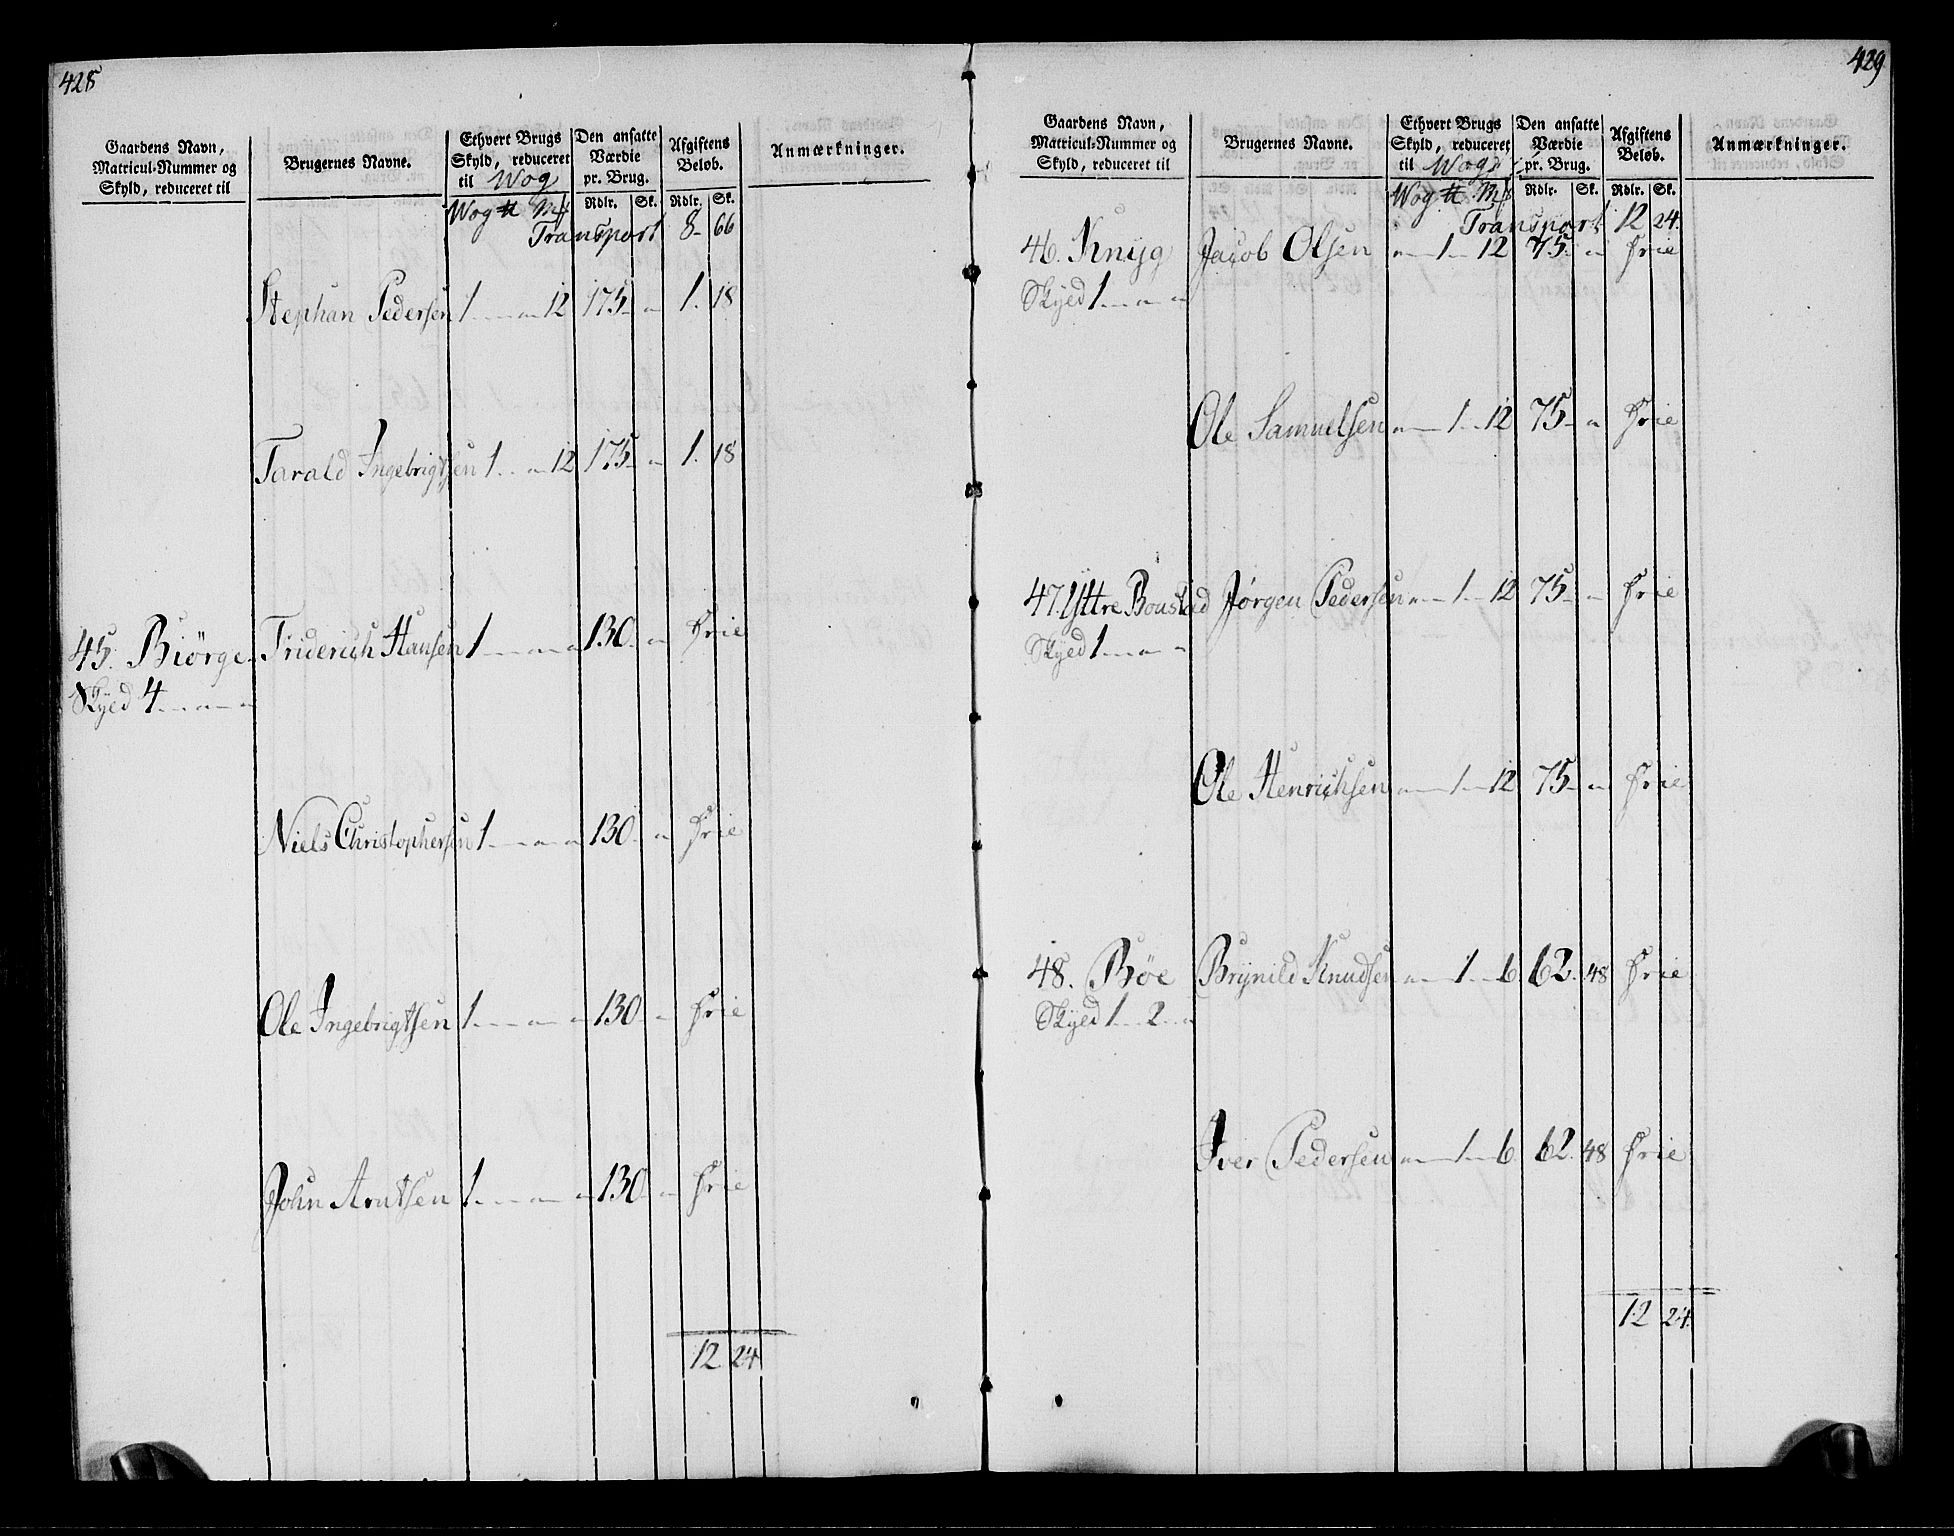 428
Gaardens Navn,
Matricul-Nummer og
Skyld, reduceret til
Brugernes Navne.
Ethvert Brugs
Skyld, reduceret
til Wog
Den ansatte
Værdie
pr. Brug.
Afgiftens
Beløb.
Anmærkninger.
Wog ℔ Mk
Rdlr. Sk. Rdlr. Sk.
Transport 8 66
Stephan Pedersen 1 - - 12 175 - 1. 18
Tarald Ingebrigtsen 1 - - 12 175 - 1. 18
45. Biörge Friderich Hansen 1 - - - 130 - Frie
Skyed 4 - - -
Niels Christophersen 1 - - - 130 - Frie
Ole Ingebrigtsen 1 - - - 130 - Frie
John Arntsen 1 - - - 130 - Frie
12 24
429
Gaardens Navn,
Matricul-Nummer og
Skyld, reduceret til
Brugernes Navne.
Ethvert Brugs
Skyld, reduceret
til Wog
Den ansatte
Værdie
pr. Brug.
Afgiftens
Beløb.
Anmærkninger.
Wog ℔ Mk
Rdlr. Sk. Rdlr. Sk.
Transport 12 24.
46. Knyg Jacob Olsen - 1 - 12 75 - Frie
Skyed 1 - - -
Ole Samuelsen - 1 - 12 75 - Frie
47. Yttre Boustad Jörgen Pedersen - 1 - 12 75 - Frie
Skyed 1 - - -
Ole Henrichsen - 1 - 12 75 - Frie
48. Böe Brynild Knudsen - 1 - 6 62. 48 Frie
Skyed 1 - 2 -
Iver Pedersen - 1 - 6 62. 48 Frie
12 24.